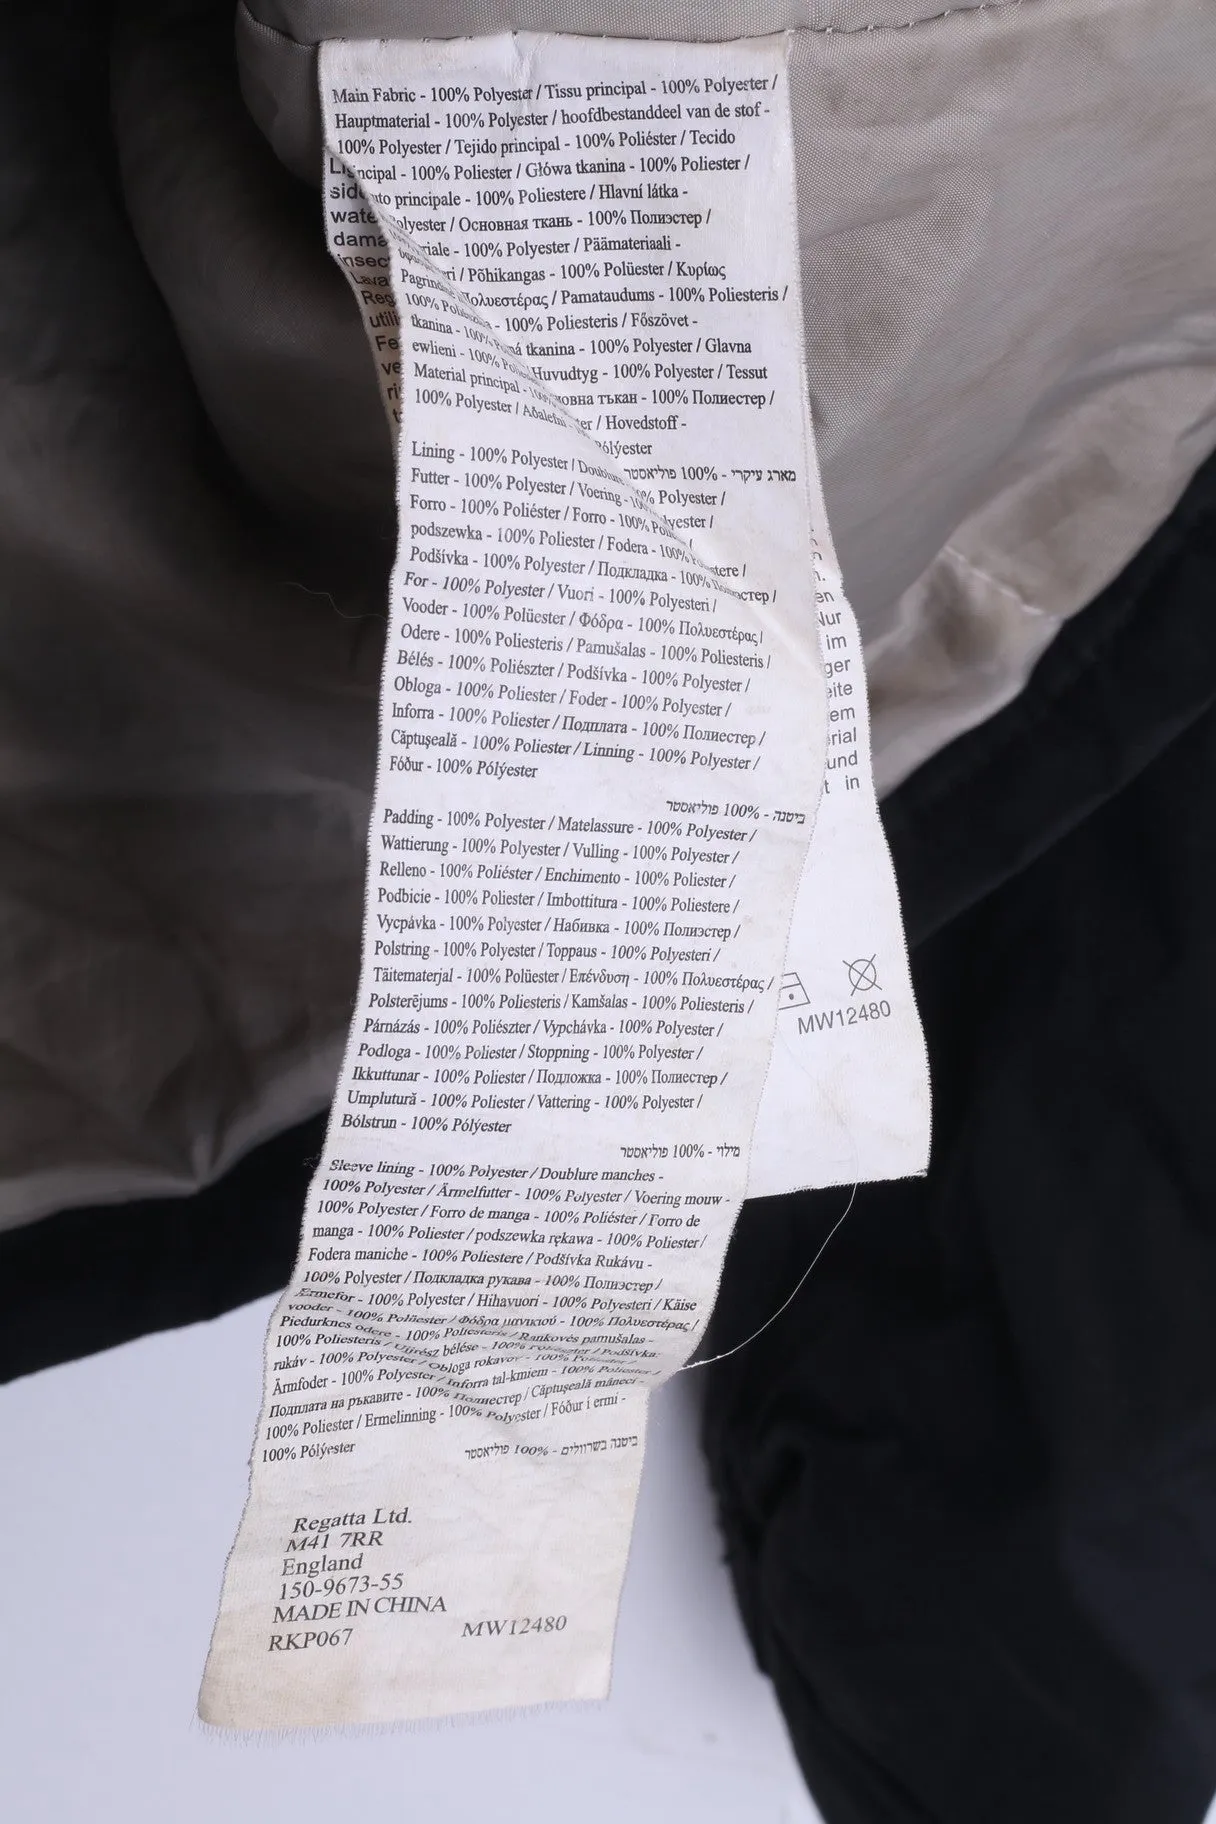 Main Fabric - 100% Polyester / Tissu principal - 100% Polyester /
Hauptmaterial - 100% Polyester / hoofdbestanddeel van de stof -
100% Polyester / Tejido principal - 100% Poliéster / Tecido
ncipal - 100% Poliester / Główa tkanina - 100% Poliester /
to principale - 100% Poliestere / Hlavní látka -
olyester / Основная ткань - 100% Полиэстер /
riale - 100% Polyester / Päämateriaali -
ri / Põhikangas - 100% Polüester / Κυρίως
Πολυεστέρας / Pamataudums - 100% Poliesteris /
- 100% Poliesteris / Főszövet -
ná tkanina - 100% Polyester / Glavna
Huvudtyg - 100% Polyester / Tessut
овна тъкан - 100% Полиестер /
ter / Hovedstoff -
Pólýester
מארג עיקרי - 100% פוליאסטר
Pagrin
100%
tkanina - 100%
ewlieni - 100%
Material principal -
100% Polyester / Aðalefni
Lining - 100% Polyester / Doublure
% Polyester /
Futter - 100% Polyester / Voering - 100% Polyester /
Forro - 100% Poliéster / Forro - 100%
podszewka - 100% Poliester / Fodera - 100% stere /
Podšívka - 100% Polyester / Подкладка - 100% эстер /
For - 100% Polyester / Vuori - 100% Polyesteri /
Vooder - 100% Polüester / Φόδρα - 100% Πολυεστέρας /
Odere - 100% Poliesteris / Pamušalas - 100% Poliesteris /
Bélés - 100% Poliészter / Podšívka - 100% Polyester /
Obloga - 100% Poliester / Foder - 100% Polyester /
Inforra - 100% Poliester / Подплата - 100% Полиестер /
Căptușeală - 100% Poliester / Linning - 100% Polyester /
Fóður - 100% Pólýester
ביטנה - 100% פוליאסטר
Padding - 100% Polyester / Matelassure - 100% Polyester /
Wattierung - 100% Polyester / Vulling - 100% Polyester /
Relleno - 100% Poliéster / Enchimento - 100% Poliester /
Podbicie - 100% Poliester / Imbottitura - 100% Poliestere /
Vycpávka - 100% Polyester / Набивка - 100% Полиэстер /
Polstring - 100% Polyester / Toppaus - 100% Polyesteri /
Täitematerjal - 100% Polüester / Επένδυση - 100% Πολυεστέρας /
Polsterējums - 100% Poliesteris / Kamšalas - 100% Poliesteris /
Párnázás - 100% Poliészter / Vypchávka - 100% Polyester /
Podloga - 100% Poliester / Stoppning - 100% Polyester /
Ikkuttunar - 100% Poliester / Подложка - 100% Полиестер /
Umplutură - 100% Poliester / Vattering - 100% Polyester /
Bólstrun - 100% Pólýester
מילוי - 100% פוליאסטר
Sleeve lining - 100% Polyester / Doublure manches -
100% Polyester / Ärmelfutter - 100% Polyester / Voering mouw -
100% Polyester / Forro de manga - 100% Poliéster / Forro de
manga - 100% Poliester / podszewka rękawa - 100% Poliester /
Fodera maniche - 100% Poliestere / Podšívka Rukávu -
100% Polyester / Подкладка рукава - 100% Полиэстер /
Ærmefor - 100% Polyester / Hihavuori - 100% Polyesteri / Käise
vooder - 100% Polüester / Φόδρα μανικιού - 100% Πολυεστέρας /
Piedurknes odere - 100% Poliesteris / Rankovės pamušalas -
100% Poliesteris / Ujjrész bélése - 100% Poliészter / Podšívka
rukáv - 100% Polyester / Obloga rokavov - 100% Poliester /
Ärmfoder - 100% Polyester / Inforra tal-kmiem - 100% Poliester /
Подплата на ръкавите - 100% Полиестер / Căptușeală mâneci -
100% Poliester / Ermelinning - 100% Polyester / Fóður í ermi -
100% Pólýester
ביטנה בשרוולים - 100% פוליאסטר
Regatta Ltd.
M41 7RR
England
150-9673-55
MADE IN CHINA
RKP067 MW12480
Li
side
wate
dama
insec
Lava
Reg
utili
Fe
ve
ri
n.
en
Nur
im
ger
eite
em
rial
und
t in
MW12480